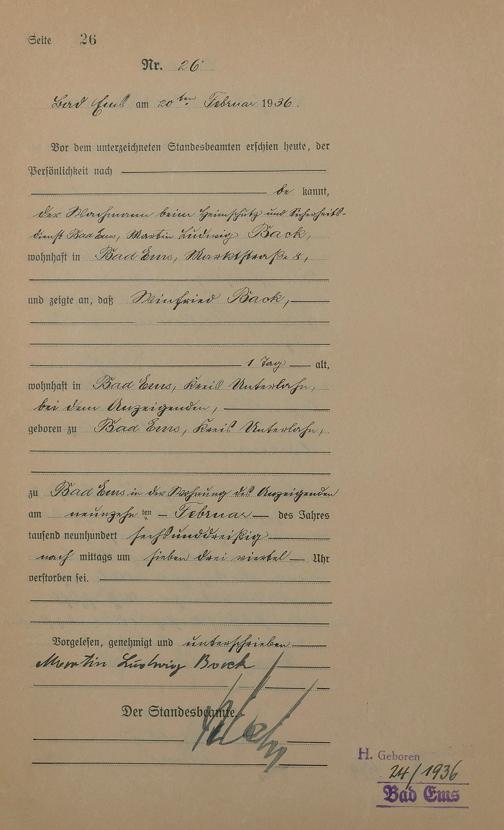 Seite 26
Nr. 26
Bad Ems am 20ten Februar 1936.
Vor dem unterzeichneten Standesbeamten erschien heute, der
Persönlichkeit nach
be kannt,
der Wachmann beim Heimschutz und Sicherheits-
dienst Bad Ems, Martin Ludwig Back,
wohnhaft in Bad Ems, Marktstraße 8,
und zeigte an, daß Winfried Back,
1 Tag alt,
wohnhaft in Bad Ems, Kreis Unterlahn,
bei dem Anzeigenden,
geboren zu Bad Ems, Kreis Unterlahn,
zu Bad Ems in der Wohnung des Anzeigenden
am neunzehnten Februar des Jahres
tausend neunhundert sechsunddreißig
nach mittags um sieben drei viertel Uhr
verstorben sei.
Vorgelesen, genehmigt und unterschrieben
Martin Ludwig Back
Der Standesbeamte.
H. Geboren
24/1936
Bad Ems